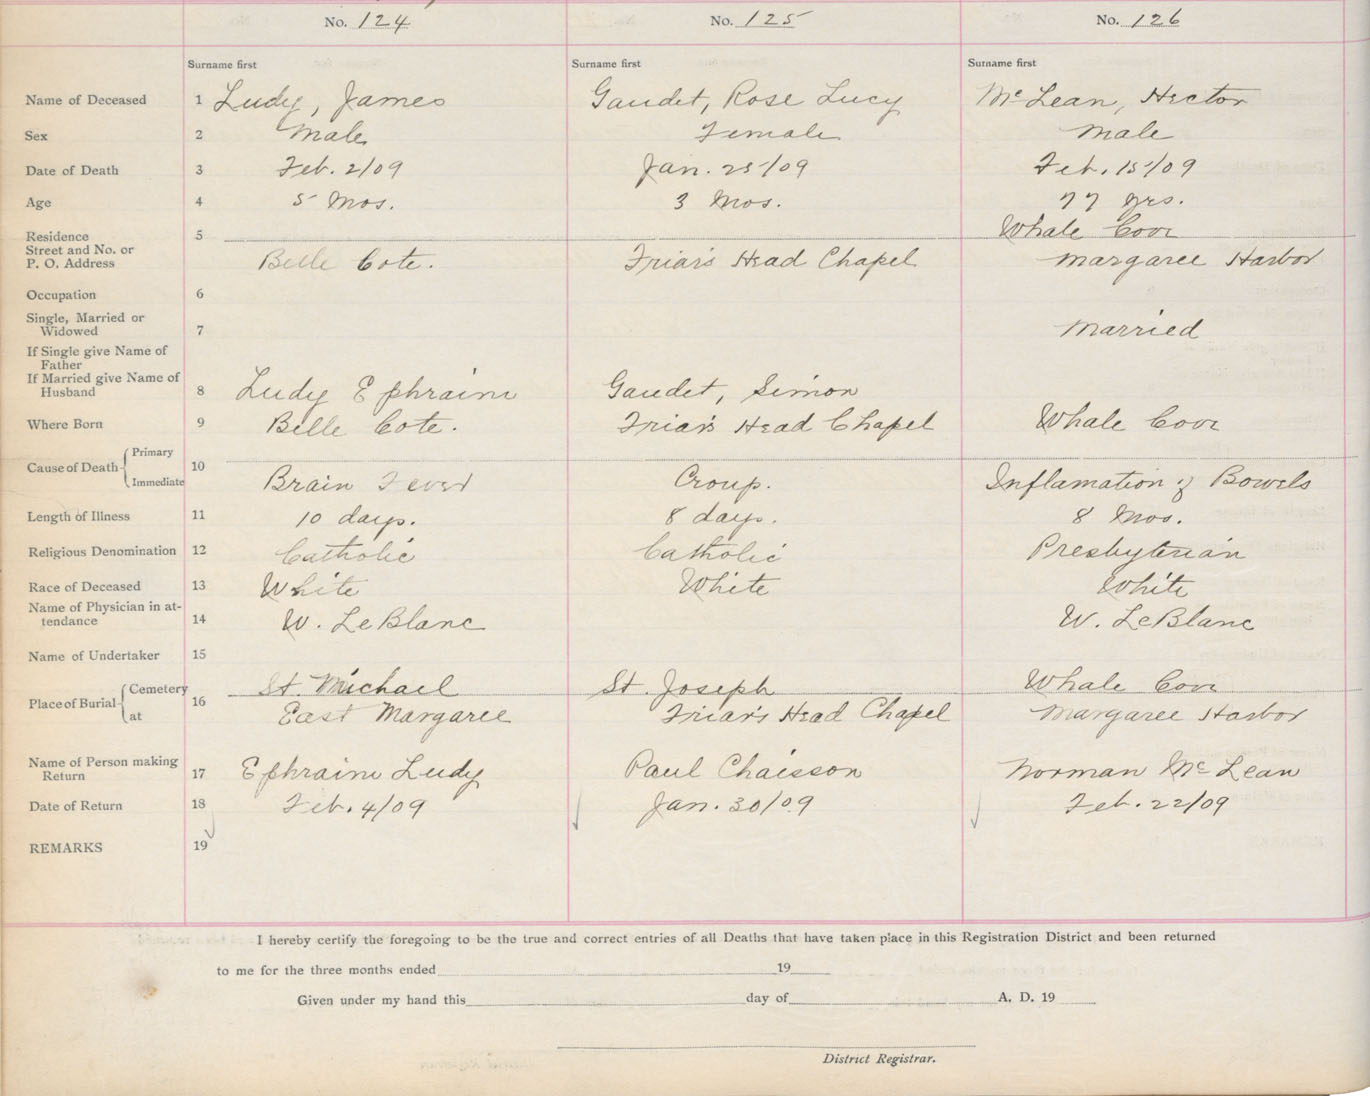 No. 124 No. 125 No. 126
Surname first Surname first Surname first
Name of Deceased 1 Ludy, James Gaudet, Rose Lucy McLean, Hector
Sex 2 Male Female Male
Date of Death 3 Feb. 2/09 Jan. 25/09 Feb. 15/09
Age 4 5 Mos. 3 Mos. 77 yrs.
Residence 5 Whale Cove
Street and No. or
P. O. Address Belle Cote. Friar's Head Chapel Margaree Harbor
Occupation 6
Single, Married or
Widowed 7 Married
If Single give Name of
Father
If Married give Name of
Husband 8 Ludy Ephraim Gaudet, Simon
Where Born 9 Belle Cote. Friar's Head Chapel Whale Cove
Cause of Death { Primary 10
Immediate Brain Fever Croup. Inflamation of Bowels
Length of Illness 11 10 days. 8 days. 8 Mos.
Religious Denomination 12 Catholic Catholic Presbyterian
Race of Deceased 13 White White White
Name of Physician in at-
tendance 14 W. LeBlanc W. LeBlanc
Name of Undertaker 15
Place of Burial { Cemetery 16 St. Michael St. Joseph Whale Cove
at East Margaree Friar's Head Chapel Margaree Harbor
Name of Person making
Return 17 Ephraim Ludy Paul Chaisson Norman McLean
Date of Return 18 Feb. 4/09 Jan. 30/09 Feb. 22/09
REMARKS 19
I hereby certify the foregoing to be the true and correct entries of all Deaths that have taken place in this Registration District and been returned
to me for the three months ended 19
Given under my hand this day of A. D. 19
District Registrar.